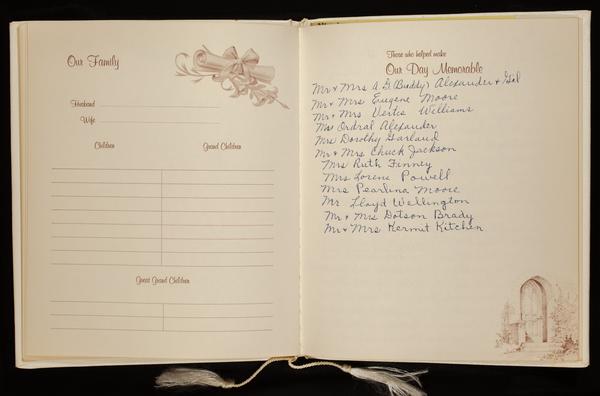 Our Family
Husband
Wife
Children Grand Children
Great Grand Children
Those who helped make
Our Day Memorable
Mr & Mrs A. G. (Buddy) Alexander & Gil
Mr & Mrs Eugene Moore
Mr & Mrs Vertis Williams
Mrs Ordral Alexander
Mrs Dorothy Garland
Mr & Mrs Chuck Jackson
Mrs Ruth Finney
Mrs Lorene Powell
Mrs Pearlina Moore
Mr. Lloyd Wellington
Mr & Mrs Dotson Brady
Mr & Mrs Kermit Kitchen